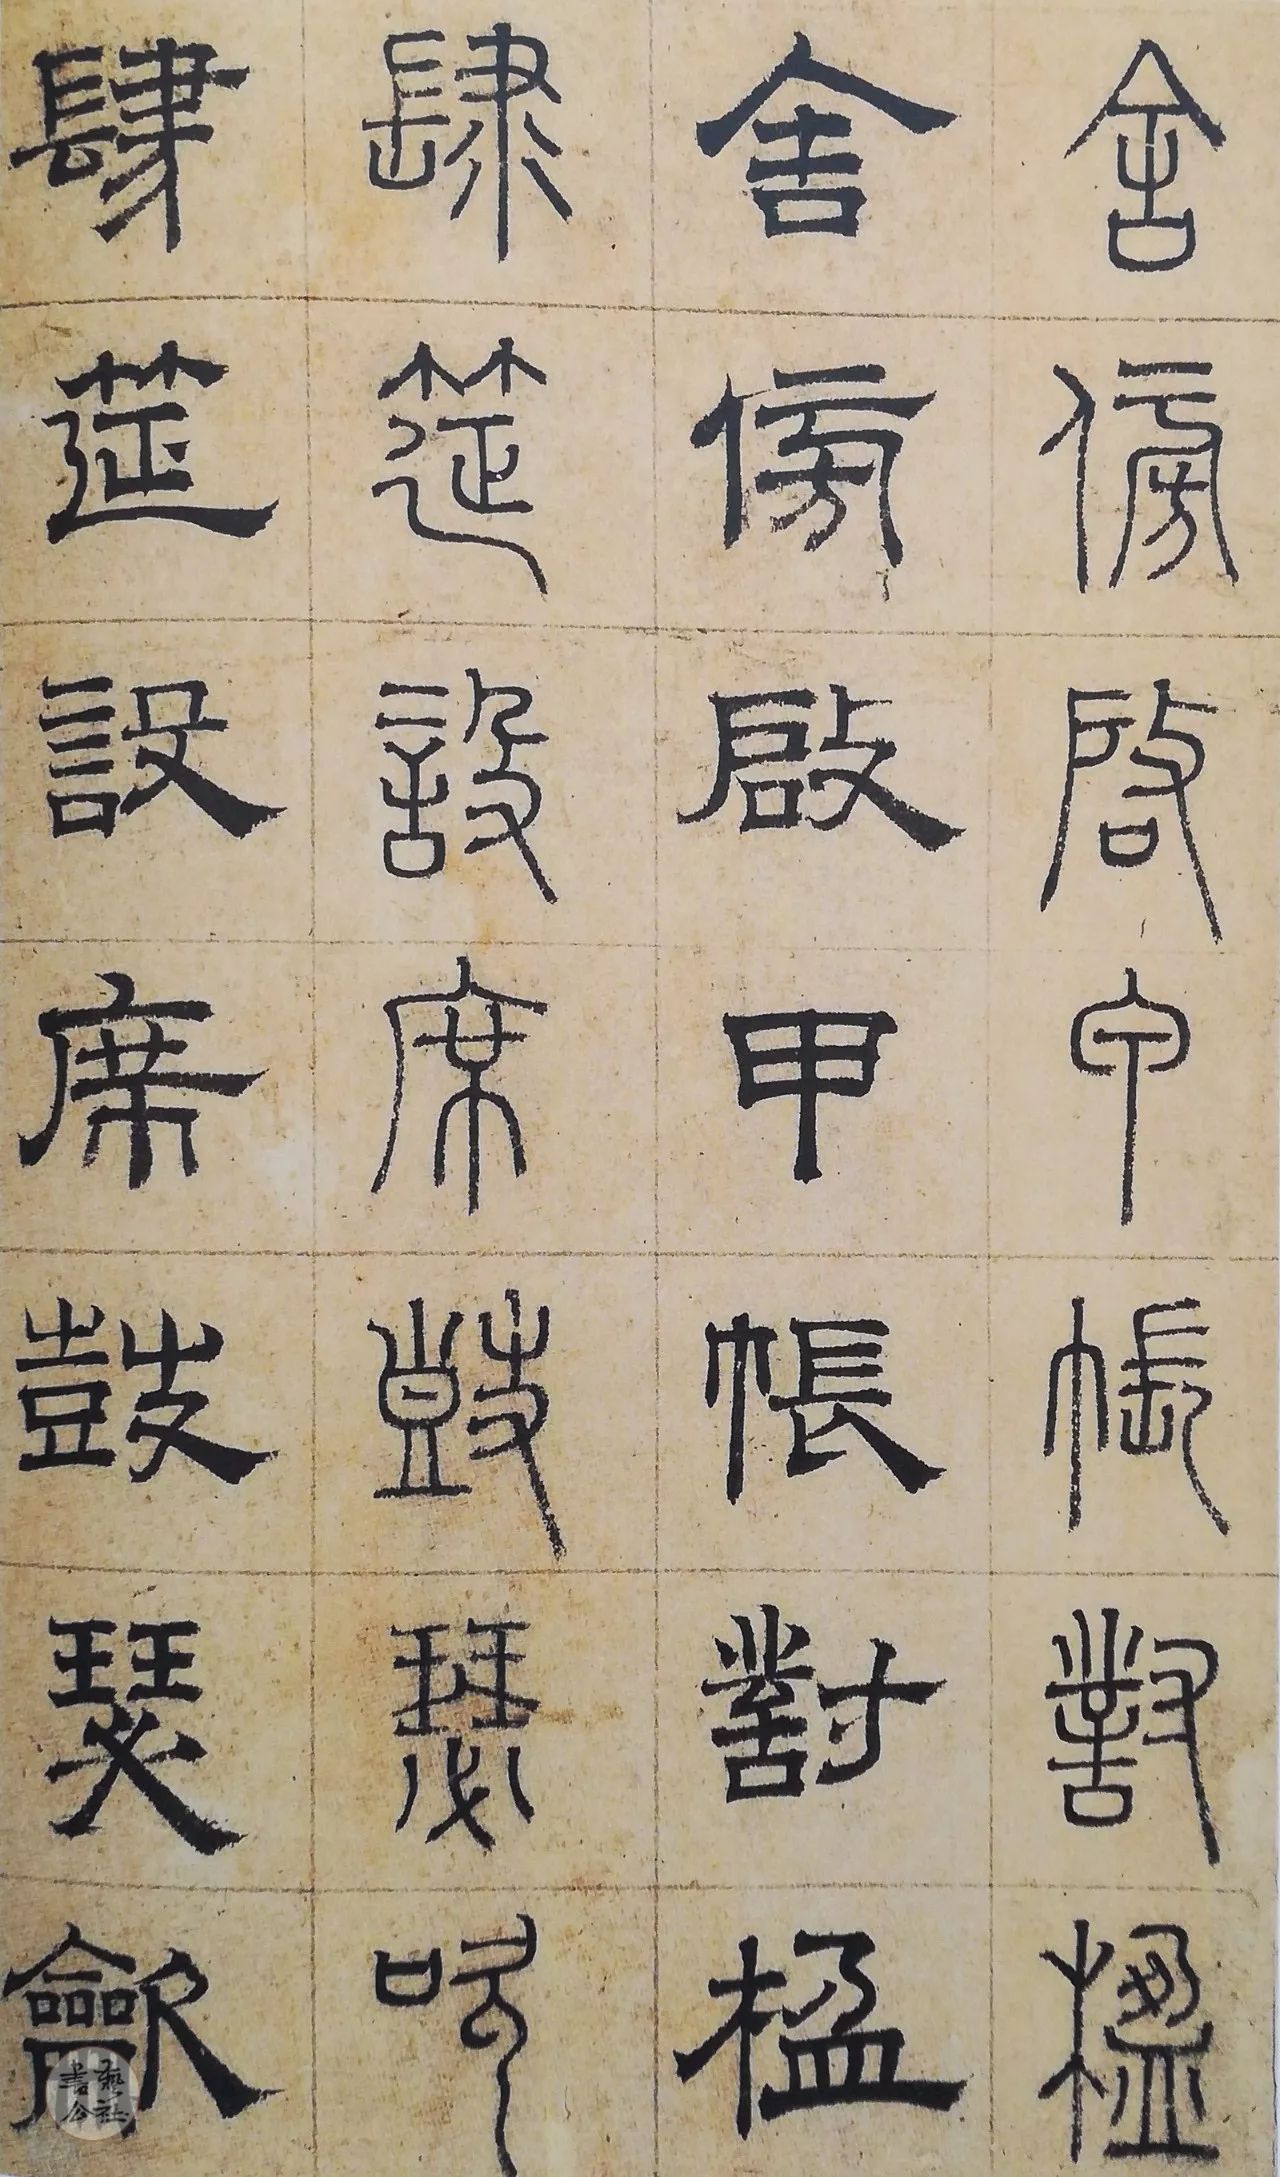 舍傍啟甲帳對楹
舍傍啟甲帳對楹
肆筵設席鼓瑟吹
肆筵設席鼓瑟龡
書藝公社